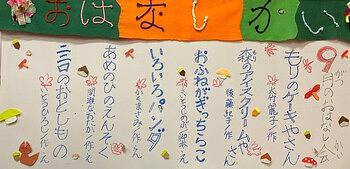 おはなしかい
9月のおはなし会
がつ
もりのケーキやさん
森のアイスクリームやさん
後藤紀子/作
おふねがぎっちらこ
いろいろパンダ
あめのひのえんそく
間瀬なおかた/作・え
三日のおとしもの
いちかわひろし/作・え